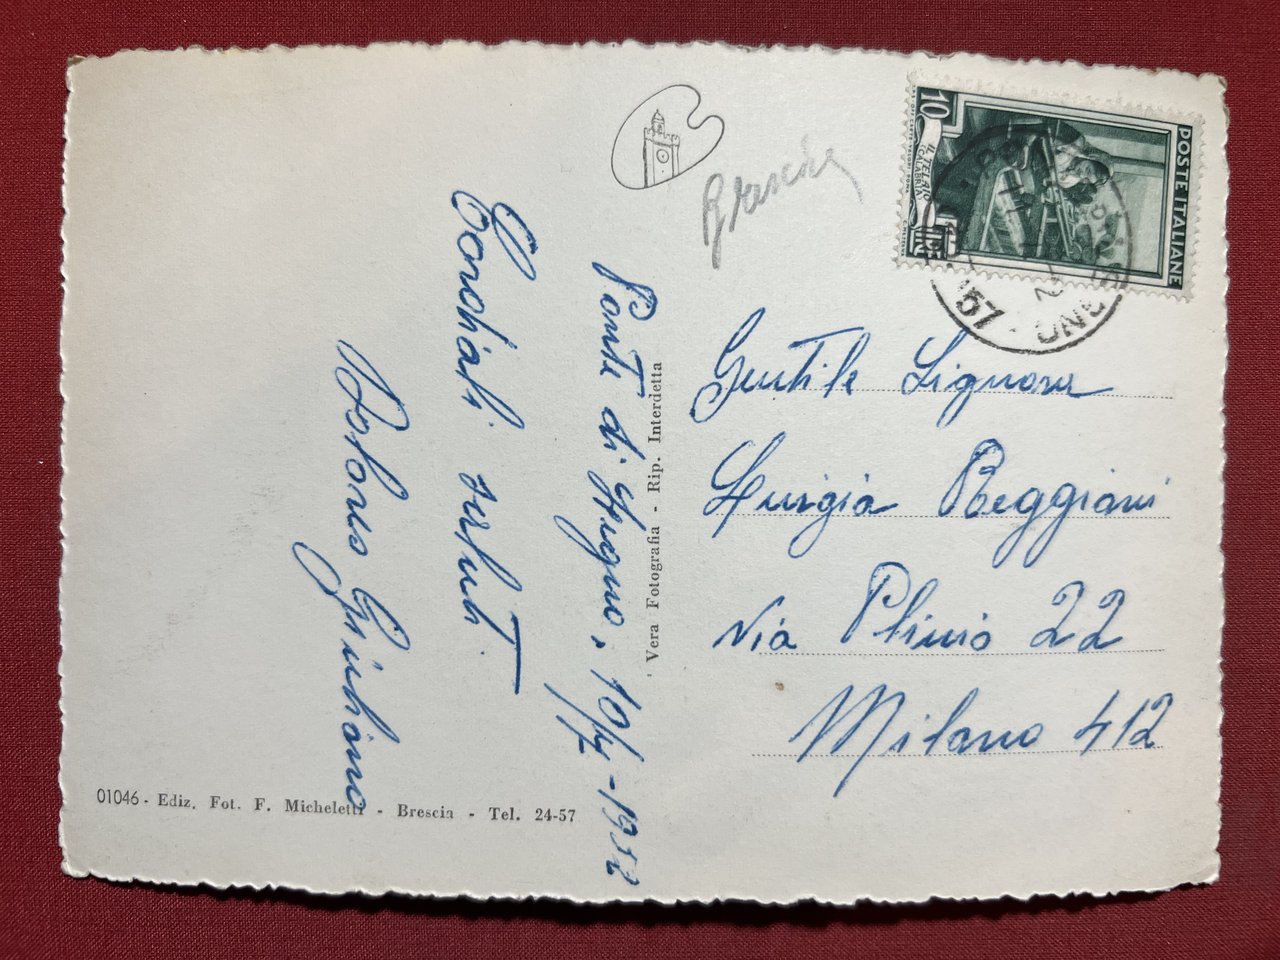 Brescia
10
POSTE ITALIANE
IL TELAIO
CALABRIA
LIRE
Ponte di Legno, 10/7-1952
Cordiali saluti
Giuliano
Vera Fotografia - Rip. Interdetta
Gentile Signora
Luigia Reggiani
Via Plinio 22
Milano 412
01046 - Ediz. Fot. F. Micheletti - Brescia - Tel. 24-57